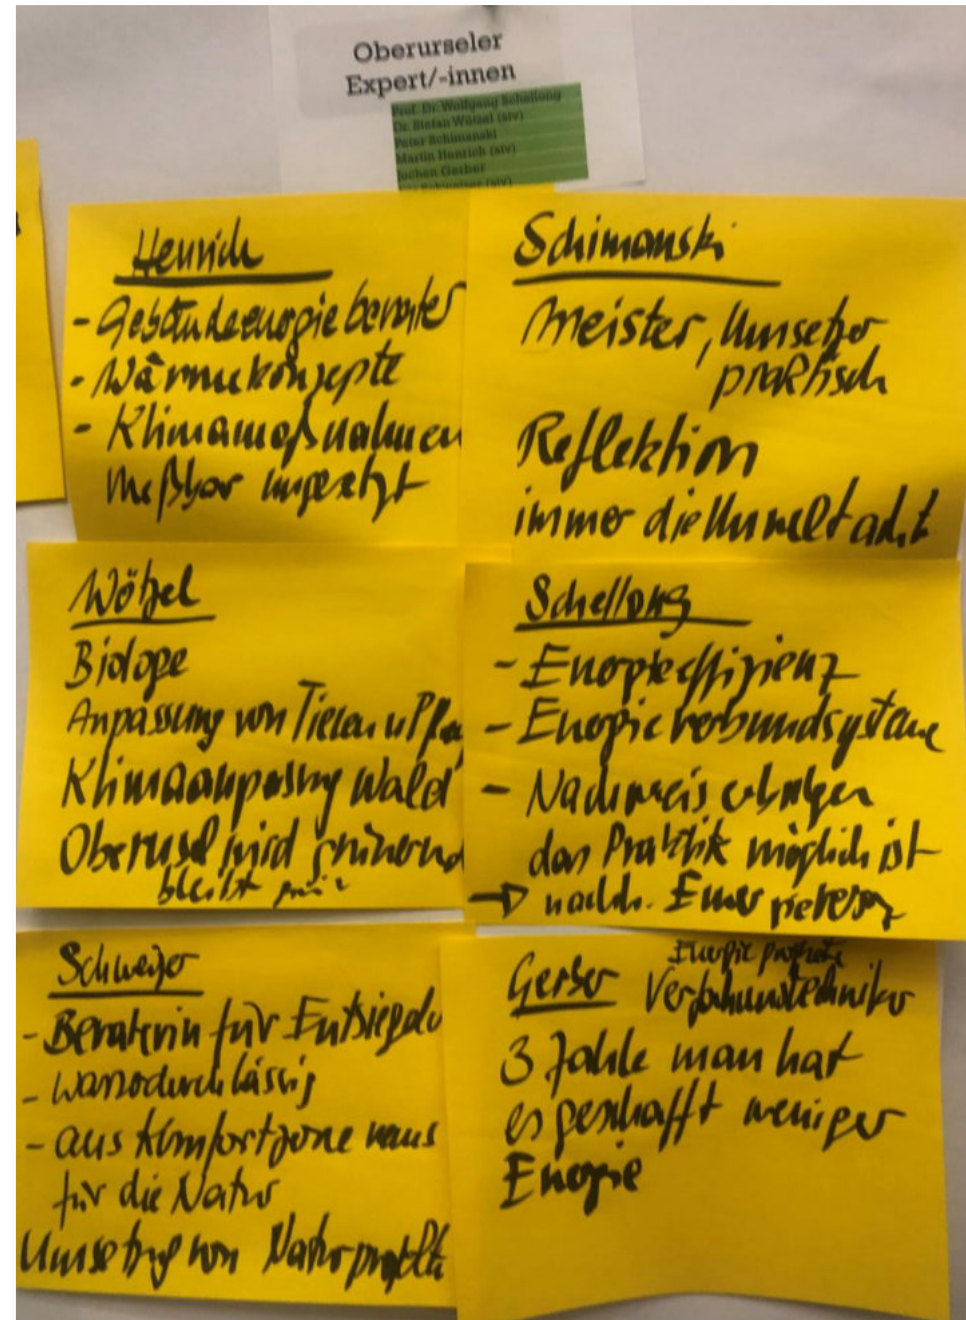 Oberurseler
Expert/-innen
Prof. Dr. Wolfgang Schellong
Dr. Stefan Wötzel (stv)
Peter Schimanski
Martin Henrich (stv)
Jochen Gerber
Schweizer (stv)
Henrich
- Gebäudeenergieberater
- Wärmekonzepte
- Klimamaßnahmen
meßbar umgesetzt
Schimanski
Meister, Umsetzer
praktisch
Reflektion
immer die Umwelt acht
Wötzel
Biotope
Anpassung von Tieren u Pfla
Klimaanpassung Wald
Oberusel wird grüner und
bleibt
Schellong
- Energieeffizienz
- Energieverbundsysteme
- Nachweis erbringen
das Praktik möglich ist
→ nachh.
Schweizer
- Beraterin für Entsiegelu
- wasserdurchlässig
- aus Komfortzone raus
für die Natur
Umsetzung von Naturprojekte
Gerber
Energie
Verfahrenstechniker
3 Jahre man hat
es geschafft weniger
Energie